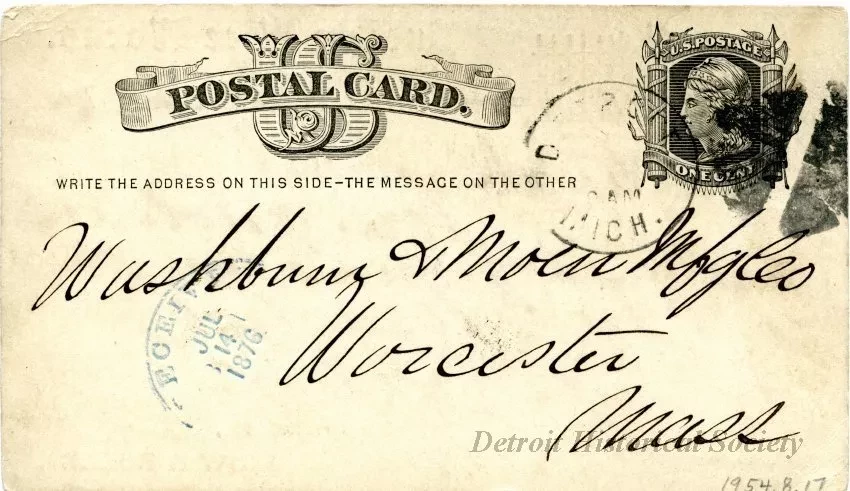 US
POSTAL CARD.
U.S. POSTAGE
ONE CENT
WRITE THE ADDRESS ON THIS SIDE–THE MESSAGE ON THE OTHER
AM
MICH.
Washburn & Moen Mfg Co
Worcester
Mass
RECEIVED
JUL
14
1876
Detroit Historical Society
1954.8.17